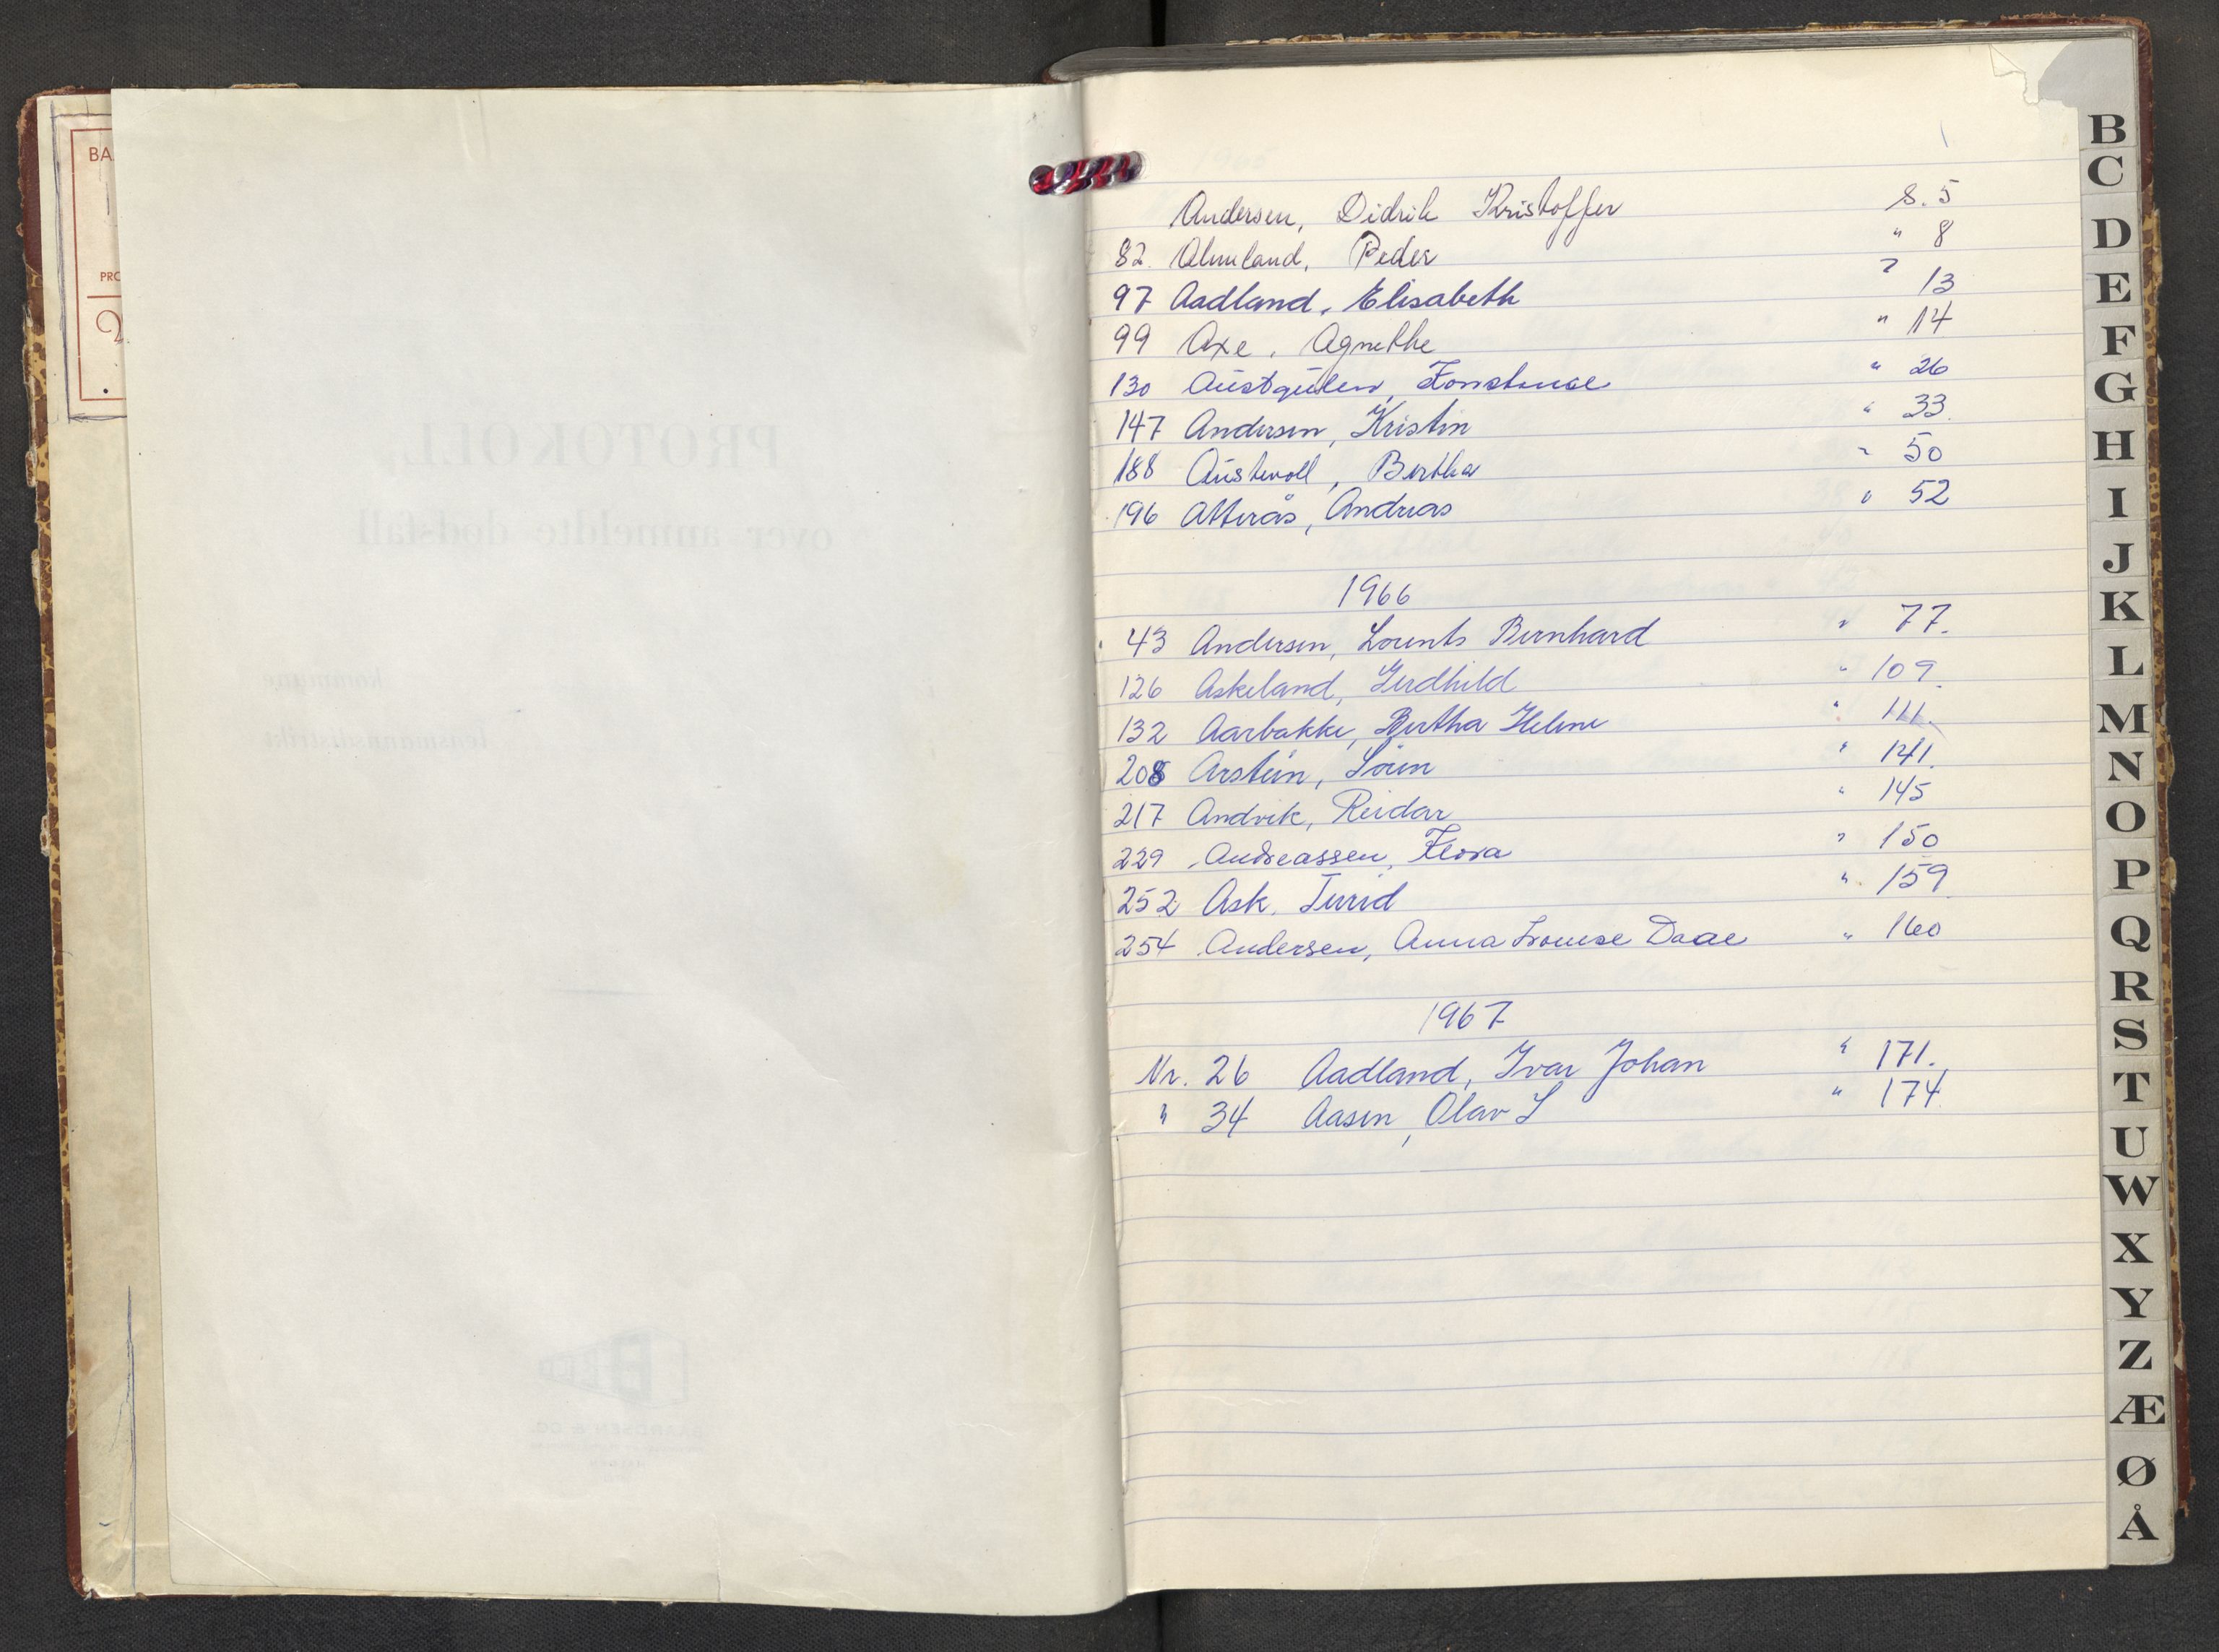 BA
PRO
PROTOKOLL
over anmeldte dødsfall
kommune
lensmannsdistrikt
Andersen, Didrik Kristoffer S. 5
82. Almeland, Peder " 8
97 Aadland, Elisabeth " 13
99 Axe, Agnethe " 14
130 Austgulen, Konstanse " 26
147 Andersen, Kristin " 33.
188 Austevoll, Bertha " 50
196 Atterås, Andreas " 52
1966
43 Andersen, Lorents Bernhard " 77.
126 Askeland, Gerdhild " 109.
132 Aarbakke, Bertha Helene " 111.
208 Arstein, Sören " 141.
217 Andvik, Reidar " 145
229 Andreassen, Flora " 150
252 Ask, Turid " 159.
254 Andersen, Anna Lovise Daae " 160
1967
Nr. 26 Aadland, Ivar Johan " 171.
" 34 Aasen, Olav S " 174.
B
C
D
E
F
G
H
I
J
K
L
M
N
O
P
Q
R
S
T
U
W
X
Y
Z
Æ
Ø
Å